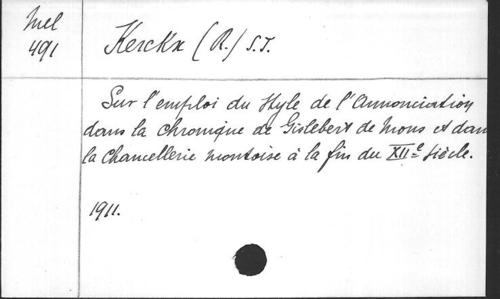 Mel
491
Kerckx (R.) S.J.
Sur l'emploi du Style de l'Annonciation
dans la chronique de Gislebert de Mons et dans
la Chancellerie montoise à la fin du XIIe siècle.
1911.